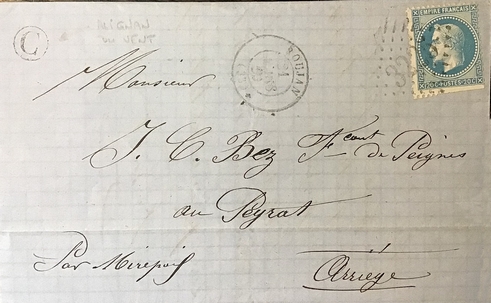 C
ROUJAN
EMPIRE FRANÇAIS
20 C POSTES 20 C
Monsieur
J. C. Bez Fcant de Peignes
au Peyrat
Par Mirepoix
Arriège